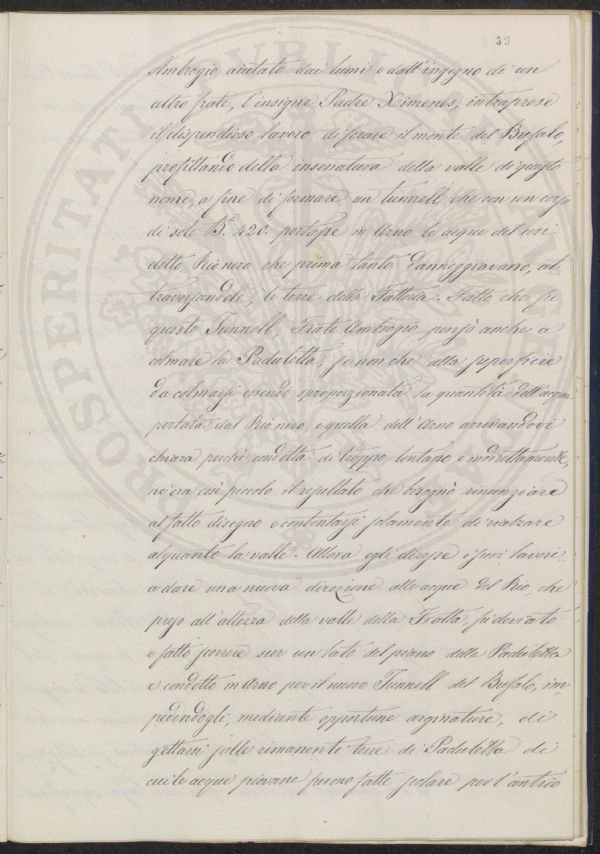 33
Ambrogio aiutato dai lumi e dall'ingegno di un
altro frate, l'insigne Padre Ximenes, intraprese
il dispendioso lavoro di forare il monte del Bufalo,
profittando della insenatura della valle di questo
nome, a fine di formare un tunnell che con un corso
di sole B.a 420. portasse in Arno le acque del così
detto Rio nero che prima tanto danneggiavano, at-
traversandole, le terre della Fattoria. Fatto che fu
questo Tunnell, Frate Ambrogio, pensò anche a
colmare la Paduletta, se non che alla superficie
da colmarsi essendo sproporzionata la quantità dell'acqua
portata dal Rio nero, e quella dell'Arno arrivandovi
chiara perchè condotta di troppo lontano e indirettamente,
ne era così piccolo il resultato che bisognò rinunziare
al fatto disegno e contentarsi solamente di rialzare
alquanto la valle. Allora egli diresse i suoi lavori
a dare una nuova direzione alle acque del Rio, che
preso all'altezza della valle della Fratta, fu deviato
e fatto scorrere sur un lato del piano della Paduletta
e condotto in Arno per il nuovo Tunnell del Bufalo, im-
pedendogli, mediante opportune arginature, di
gettarsi sulle rimanenti terre di Paduletta di
cui le acque piovane furono fatte scolare per l'antico
PROSPERITATI PUBLICAE